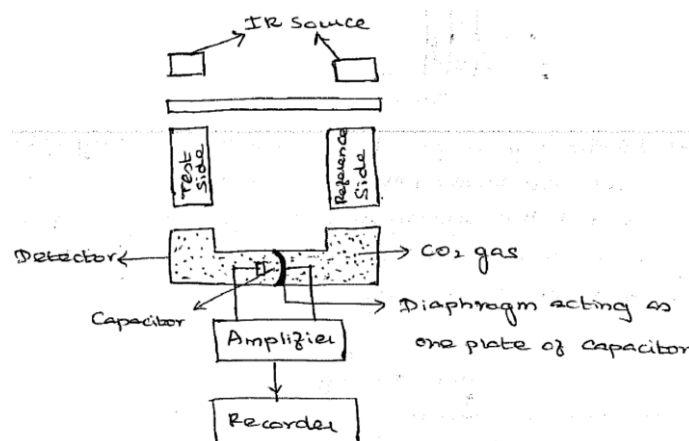 IR Source
Test
Side
Reference
Side
Detector
CO₂ gas
Capacitor
Diaphragm acting as
one plate of capacitor
Amplifier
Recorder